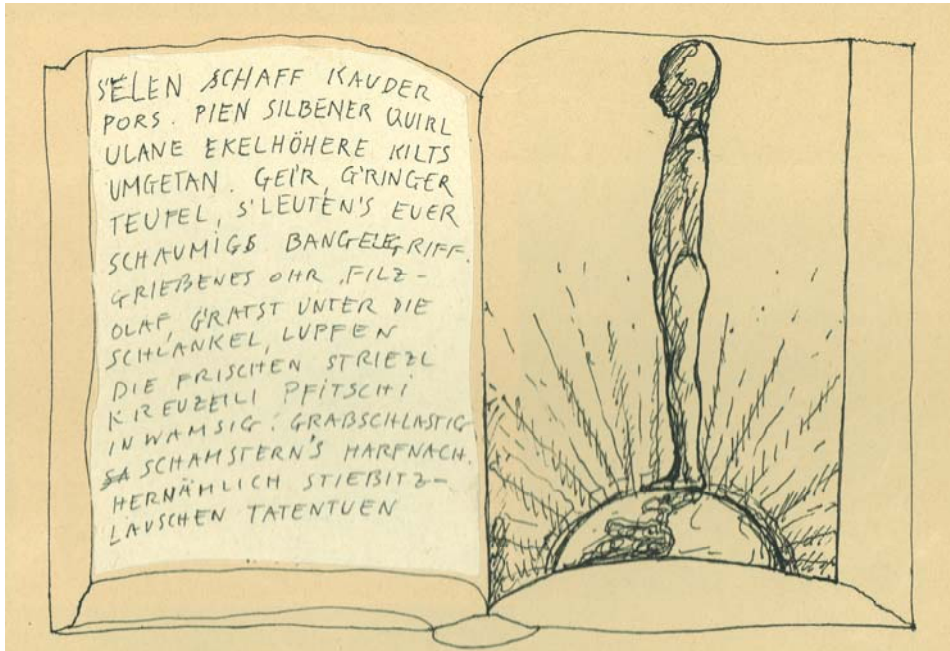 S'ELEN SCHAFF KAUDER
PORS. PIEN SILBENER QUIRL
ULANE EKELHÖHERE KILTS
UMGETAN. GEI'R, G'RINGER
TEUFEL, S'LEUTEN'S EUER
SCHAUMIGS BANGELEGRIFF.
GRIEßENES OHR, FILZ-
OLAF, G'RATST UNTER DIE
SCHLANKEL, LUPFEN
DIE FRISCHEN STRIEZL
KREUZEILI PFITSCHI
IN WAMSIG. GRABSCHLASTIG
SCHAMSTERN'S HARFNACH.
HERNÄHMLICH STIEßITZ-
LAUSCHEN TATENTUEN